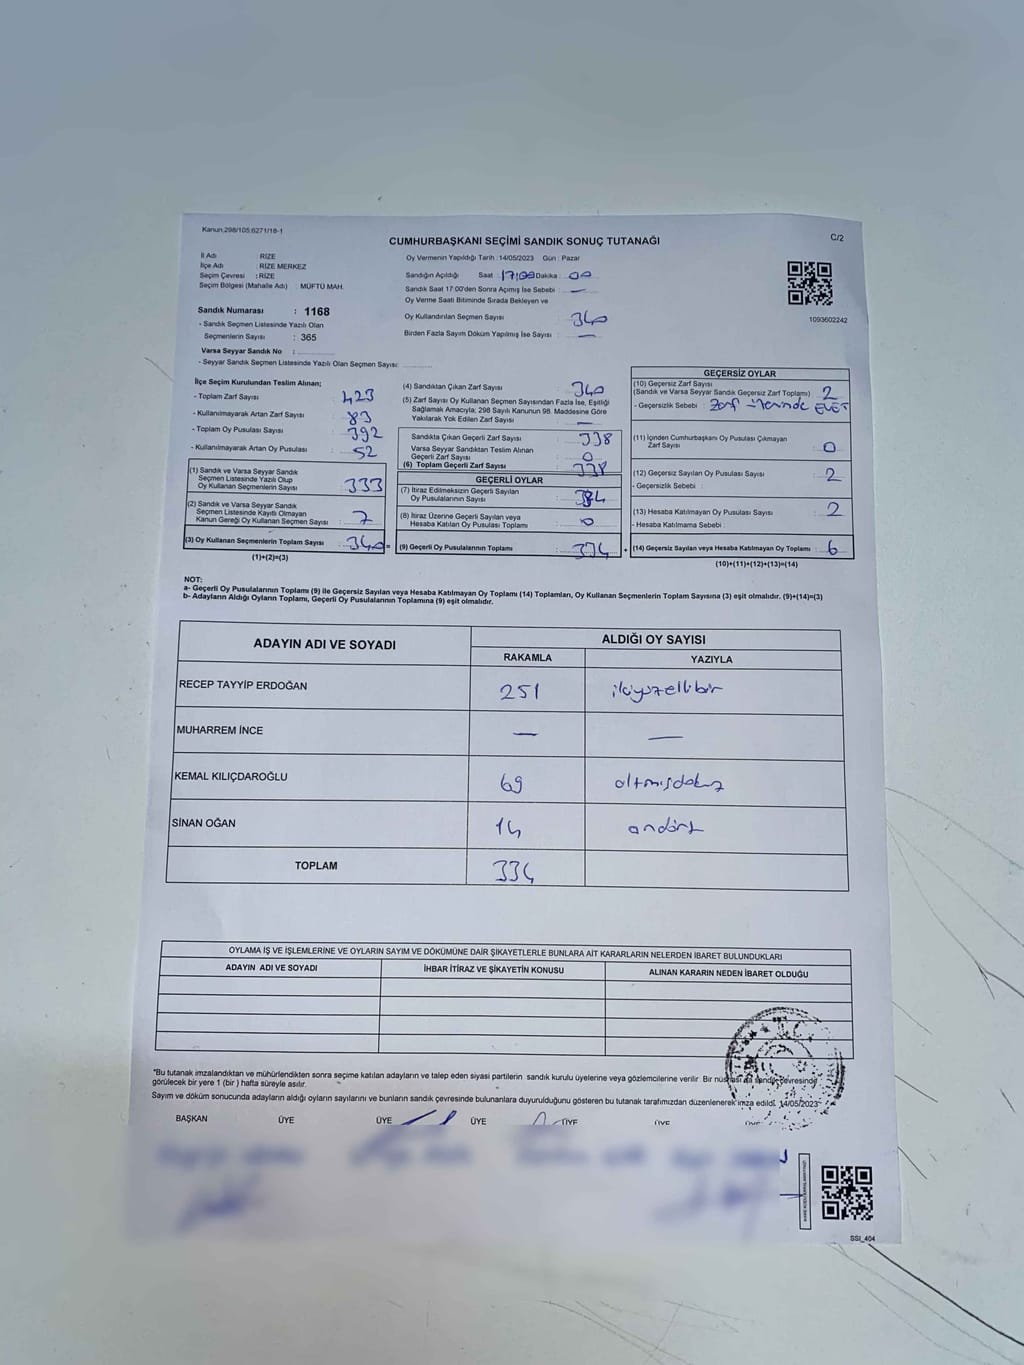 Kanun:298/105:6271/16-1
CUMHURBAŞKANI SEÇİMİ SANDIK SONUÇ TUTANAĞI
C/2
İl Adı : RİZE
İlçe Adı : RİZE MERKEZ
Seçim Çevresi : RİZE
Seçim Bölgesi (Mahalle Adı) : MÜFTÜ MAH.
Sandık Numarası : 1168
- Sandık Seçmen Listesinde Yazılı Olan
Seçmenlerin Sayısı : 365
Varsa Seyyar Sandık No :
- Seyyar Sandık Seçmen Listesinde Yazılı Olan Seçmen Sayısı:
Oy Vermenin Yapıldığı Tarih :14/05/2023 Gün : Pazar
Sandığın Açıldığı Saat : 17:00 Dakika : 00
Sandık Saat 17.00'den Sonra Açımış İse Sebebi : —
Oy Verme Saati Bitiminde Sırada Bekleyen ve
Oy Kullandırılan Seçmen Sayısı : 340
Birden Fazla Sayım Döküm Yapılmış İse Sayısı : —
1093602242
İlçe Seçim Kurulundan Teslim Alınan;
- Toplam Zarf Sayısı : 423
- Kullanılmayarak Artan Zarf Sayısı : 83
- Toplam Oy Pusulası Sayısı : 392
- Kullanılmayarak Artan Oy Pusulası : 52
(1) Sandık ve Varsa Seyyar Sandık
Seçmen Listesinde Yazılı Olup
Oy Kullanan Seçmenlerin Sayısı : 333
(2) Sandık ve Varsa Seyyar Sandık
Seçmen Listesinde Kayıtlı Olmayan
Kanun Gereği Oy Kullanan Seçmen Sayısı : 7
(3) Oy Kullanan Seçmenlerin Toplam Sayısı : 340 =
(1)+(2)=(3)
(4) Sandıktan Çıkan Zarf Sayısı : 340
(5) Zarf Sayısı Oy Kullanan Seçmen Sayısından Fazla İse, Eşitliği
Sağlamak Amacıyla; 298 Sayılı Kanunun 98. Maddesine Göre
Yakılarak Yok Edilen Zarf Sayısı : —
Sandıkta Çıkan Geçerli Zarf Sayısı : 338
Varsa Seyyar Sandıktan Teslim Alınan
Geçerli Zarf Sayısı : 0
(6) Toplam Geçerli Zarf Sayısı : 338
GEÇERLİ OYLAR
(7) İtiraz Edilmeksizin Geçerli Sayılan
Oy Pusulalarının Sayısı : 334
(8) İtiraz Üzerine Geçerli Sayılan veya
Hesaba Katılan Oy Pusulası Toplamı : 0
(9) Geçerli Oy Pusulalarının Toplamı : 334 +
GEÇERSİZ OYLAR
(10) Geçersiz Zarf Sayısı
(Sandık ve Varsa Seyyar Sandık Geçersiz Zarf Toplamı) : 2
- Geçersizlik Sebebi : Zarf üzerinde EVET
(11) İçinden Cumhurbaşkanı Oy Pusulası Çıkmayan
Zarf Sayısı : 0
(12) Geçersiz Sayılan Oy Pusulası Sayısı : 2
- Geçersizlik Sebebi :
(13) Hesaba Katılmayan Oy Pusulası Sayısı : 2
- Hesaba Katılmama Sebebi :
(14) Geçersiz Sayılan veya Hesaba Katılmayan Oy Toplamı : 6
(10)+(11)+(12)+(13)=(14)
NOT:
a- Geçerli Oy Pusulalarının Toplamı (9) ile Geçersiz Sayılan veya Hesaba Katılmayan Oy Toplamı (14) Toplamları, Oy Kullanan Seçmenlerin Toplam Sayısına (3) eşit olmalıdır. (9)+(14)=(3)
b- Adayların Aldığı Oyların Toplamı, Geçerli Oy Pusulalarının Toplamına (9) eşit olmalıdır.
ADAYIN ADI VE SOYADI
ALDIĞI OY SAYISI
RAKAMLA YAZIYLA
RECEP TAYYİP ERDOĞAN 251 ikiyüzellibir
MUHARREM İNCE — —
KEMAL KILIÇDAROĞLU 69 altmışdokuz
SİNAN OĞAN 14 ondört
TOPLAM 334
OYLAMA İŞ VE İŞLEMLERİNE VE OYLARIN SAYIM VE DÖKÜMÜNE DAİR ŞİKAYETLERLE BUNLARA AİT KARARLARIN NELERDEN İBARET BULUNDUKLARI
ADAYIN ADI VE SOYADI İHBAR İTİRAZ VE ŞİKAYETİN KONUSU ALINAN KARARIN NEDEN İBARET OLDUĞU
*Bu tutanak imzalandıktan ve mühürlendikten sonra seçime katılan adayların ve talep eden siyasi partilerin sandık kurulu üyelerine veya gözlemcilerine verilir. Bir nüshası da sandık çevresinde
görülecek bir yere 1 (bir ) hafta süreyle asılır.
Sayım ve döküm sonucunda adayların aldığı oyların sayılarını ve bunların sandık çevresinde bulunanlara duyurulduğunu gösteren bu tutanak tarafımızdan düzenlenerek imza edildi. 14/05/2023
BAŞKAN ÜYE ÜYE ÜYE ÜYE ÜYE ÜYE
SSI_404